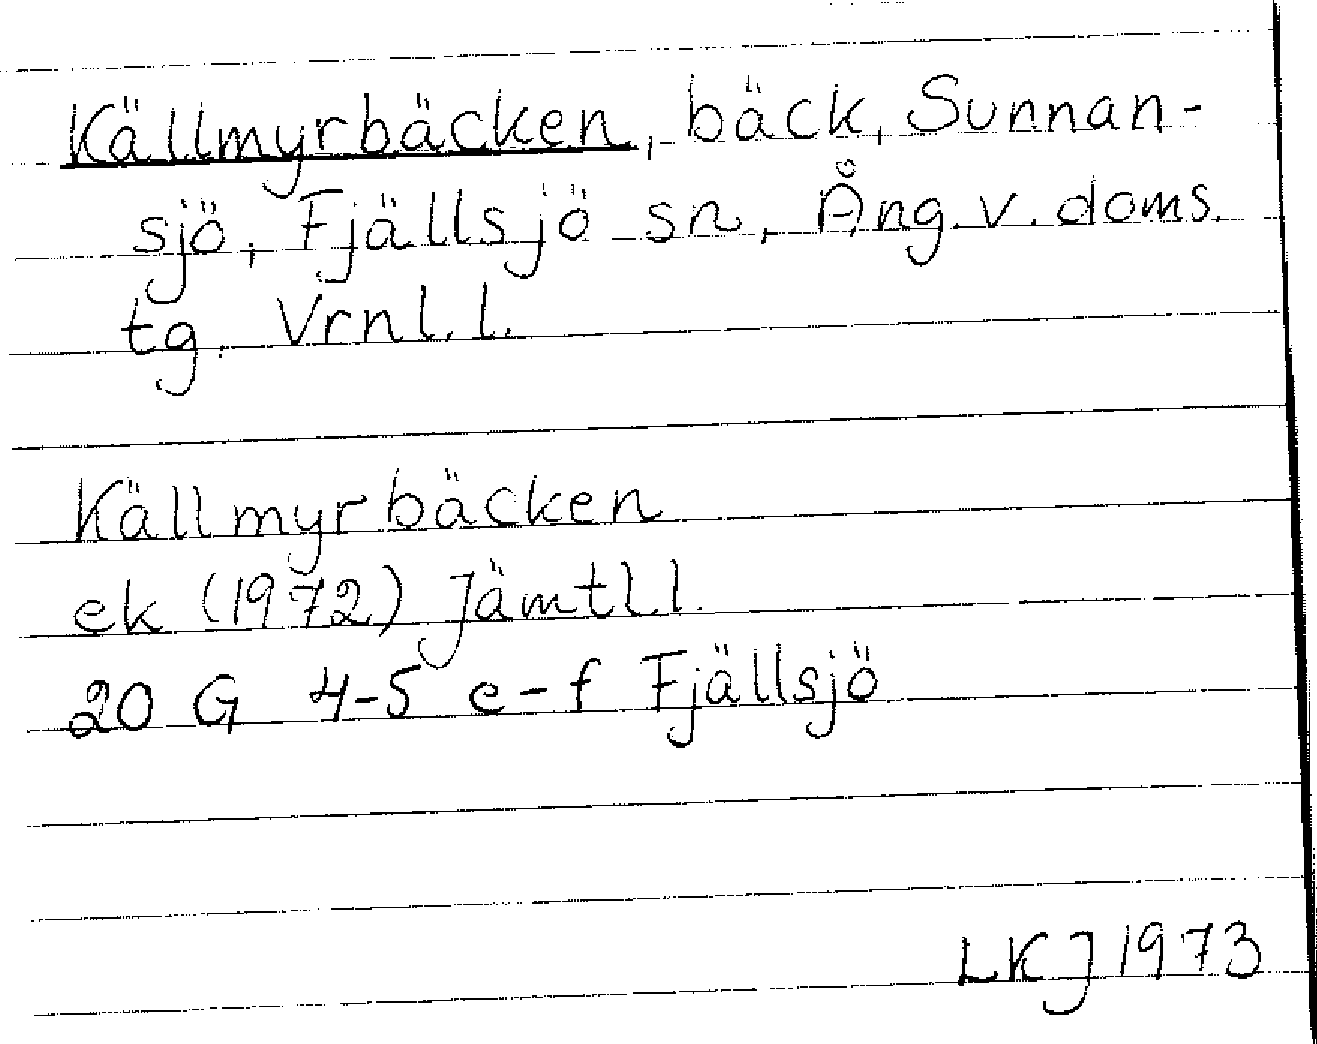 Källmyrbäcken, bäck, Sunnan-
sjö, Fjällsjö sn, Ång. v. doms.
tg. Vrnl. l.
Källmyrbäcken
ek (1972) Jämtl l.
20 G 4-5 e-f Fjällsjö
LKJ 1973